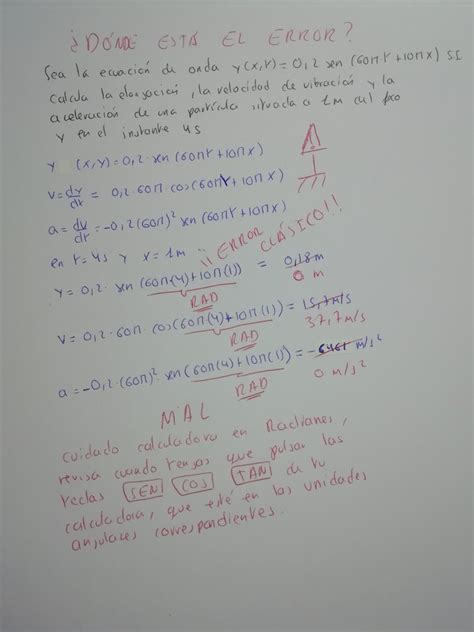 ¿DÓNDE ESTÁ EL ERROR?
Sea la ecuación de onda y(x,t)=0,2 sen(60πt+10πx) SI
Calcula la elongación, la velocidad de vibración y la
aceleración de una partícula situada a 1m del foco
y en el instante 4s
y (x,y)=0,2·sen(60πt+10πx)
v=dy/dt = 0,2·60π cos(60πt+10πx)
a=dv/dt=-0,2(60π)² sen(60πt+10πx)
en t=4s y x=1m
¡¡ERROR CLÁSICO!!
y=0,2· sen(60π(4)+10π(1)) = 0,18m
RAD 0 m
v=0,2·60π· cos(60π(4)+10π(1))=15,7m/s
RAD 37,7m/s
a=-0,2·(60π)² sen(60π(4)+10π(1))=-6461 m/s²
RAD 0 m/s²
MAL
cuidado calculadora en Radianes,
revisa cuando tengas que pulsar las
teclas SEN COS TAN de tu
calculadora, que esté en las unidades
angulares correspondientes.